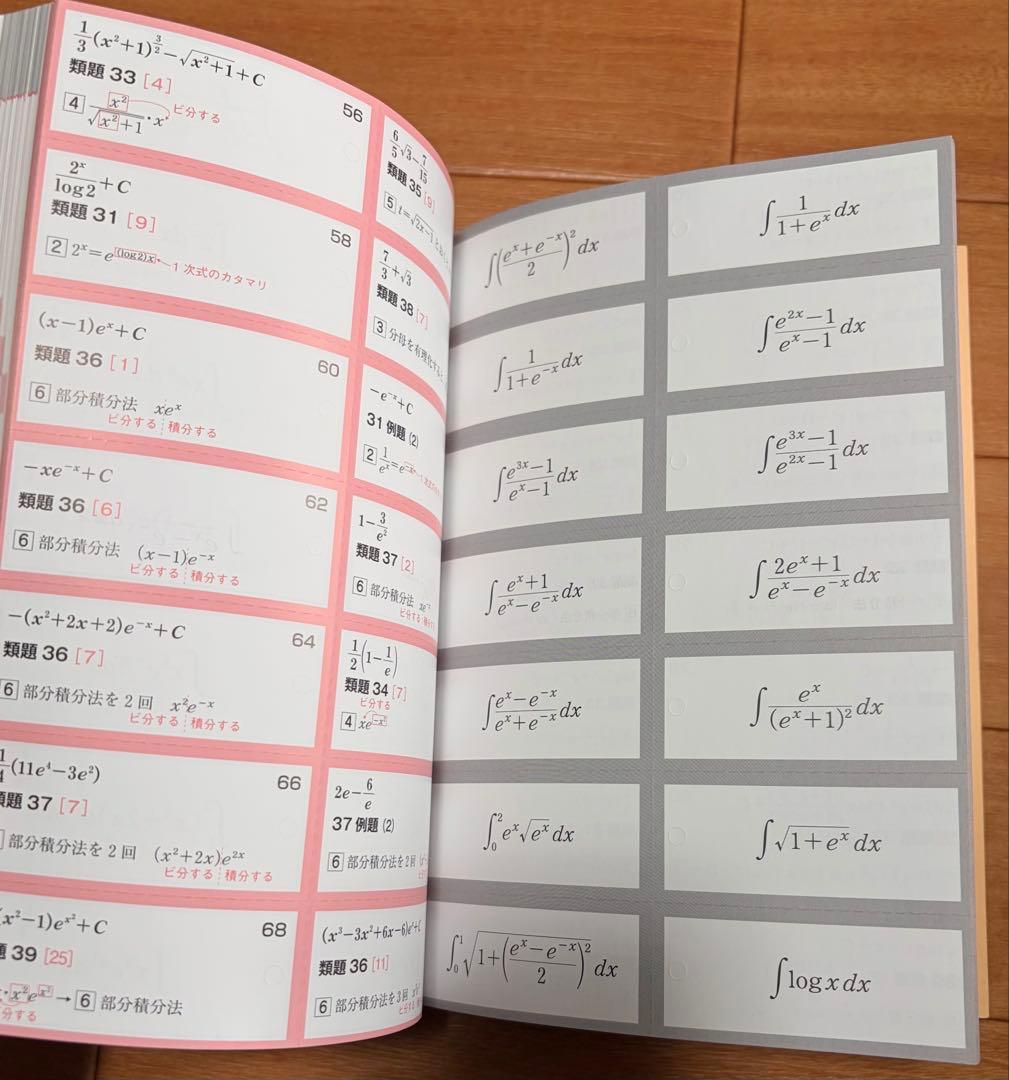 1/3(x²+1)^{3/2}−√(x²+1)+C
類題 33 [4]
56
4 x²/√(x²+1)・x ビ分する
2ˣ/log2+C
類題 31 [9]
58
2 2ˣ=e^{(log2)x} 1次式のカタマリ
(x−1)eˣ+C
類題 36 [1]
60
6 部分積分法 xeˣ
ビ分する 積分する
−xe⁻ˣ+C
類題 36 [6]
62
6 部分積分法 (x−1)e⁻ˣ
ビ分する 積分する
−(x²+2x+2)e⁻ˣ+C
類題 36 [7]
64
6 部分積分法を2回 x²e⁻ˣ
ビ分する 積分する
(11e⁴−3e²)
題 37 [7]
66
部分積分法を2回 (x²+2x)e²ˣ
ビ分する 積分する
x²−1)e^{x²}+C
題 39 [25]
68
x²e^{x²} → 6 部分積分法
分する
6/5√3−7/15
類題 35 [9]
5 t=√(2x−1)
7/3+√3
類題 38 [7]
3 分母を有理化する
−e⁻ˣ+C
31 例題 (2)
2 1/eˣ=e⁻ˣ
1−3/e²
類題 37 [2]
6 部分積分法
ビ分する
1/2(1−1/e)
類題 34 [7]
ビ分する
4 xe^{−x²}
2e−6/e
37 例題 (2)
6 部分積分法を2回
(x³−3x²+6x−6)eˣ+C
類題 36 [11]
6 部分積分法を3回
∫((eˣ+e⁻ˣ)/2)²dx
∫1/(1+eˣ)dx
∫1/(1+e⁻ˣ)dx
∫(e²ˣ−1)/(eˣ−1)dx
∫(e³ˣ−1)/(eˣ−1)dx
∫(e³ˣ−1)/(e²ˣ−1)dx
∫(eˣ+1)/(eˣ−e⁻ˣ)dx
∫(2eˣ+1)/(eˣ−e⁻ˣ)dx
∫(eˣ−e⁻ˣ)/(eˣ+e⁻ˣ)dx
∫eˣ/(eˣ+1)²dx
∫₀²eˣ√(eˣ)dx
∫√(1+eˣ)dx
∫₀¹√(1+((eˣ−e⁻ˣ)/2)²)dx
∫log x dx